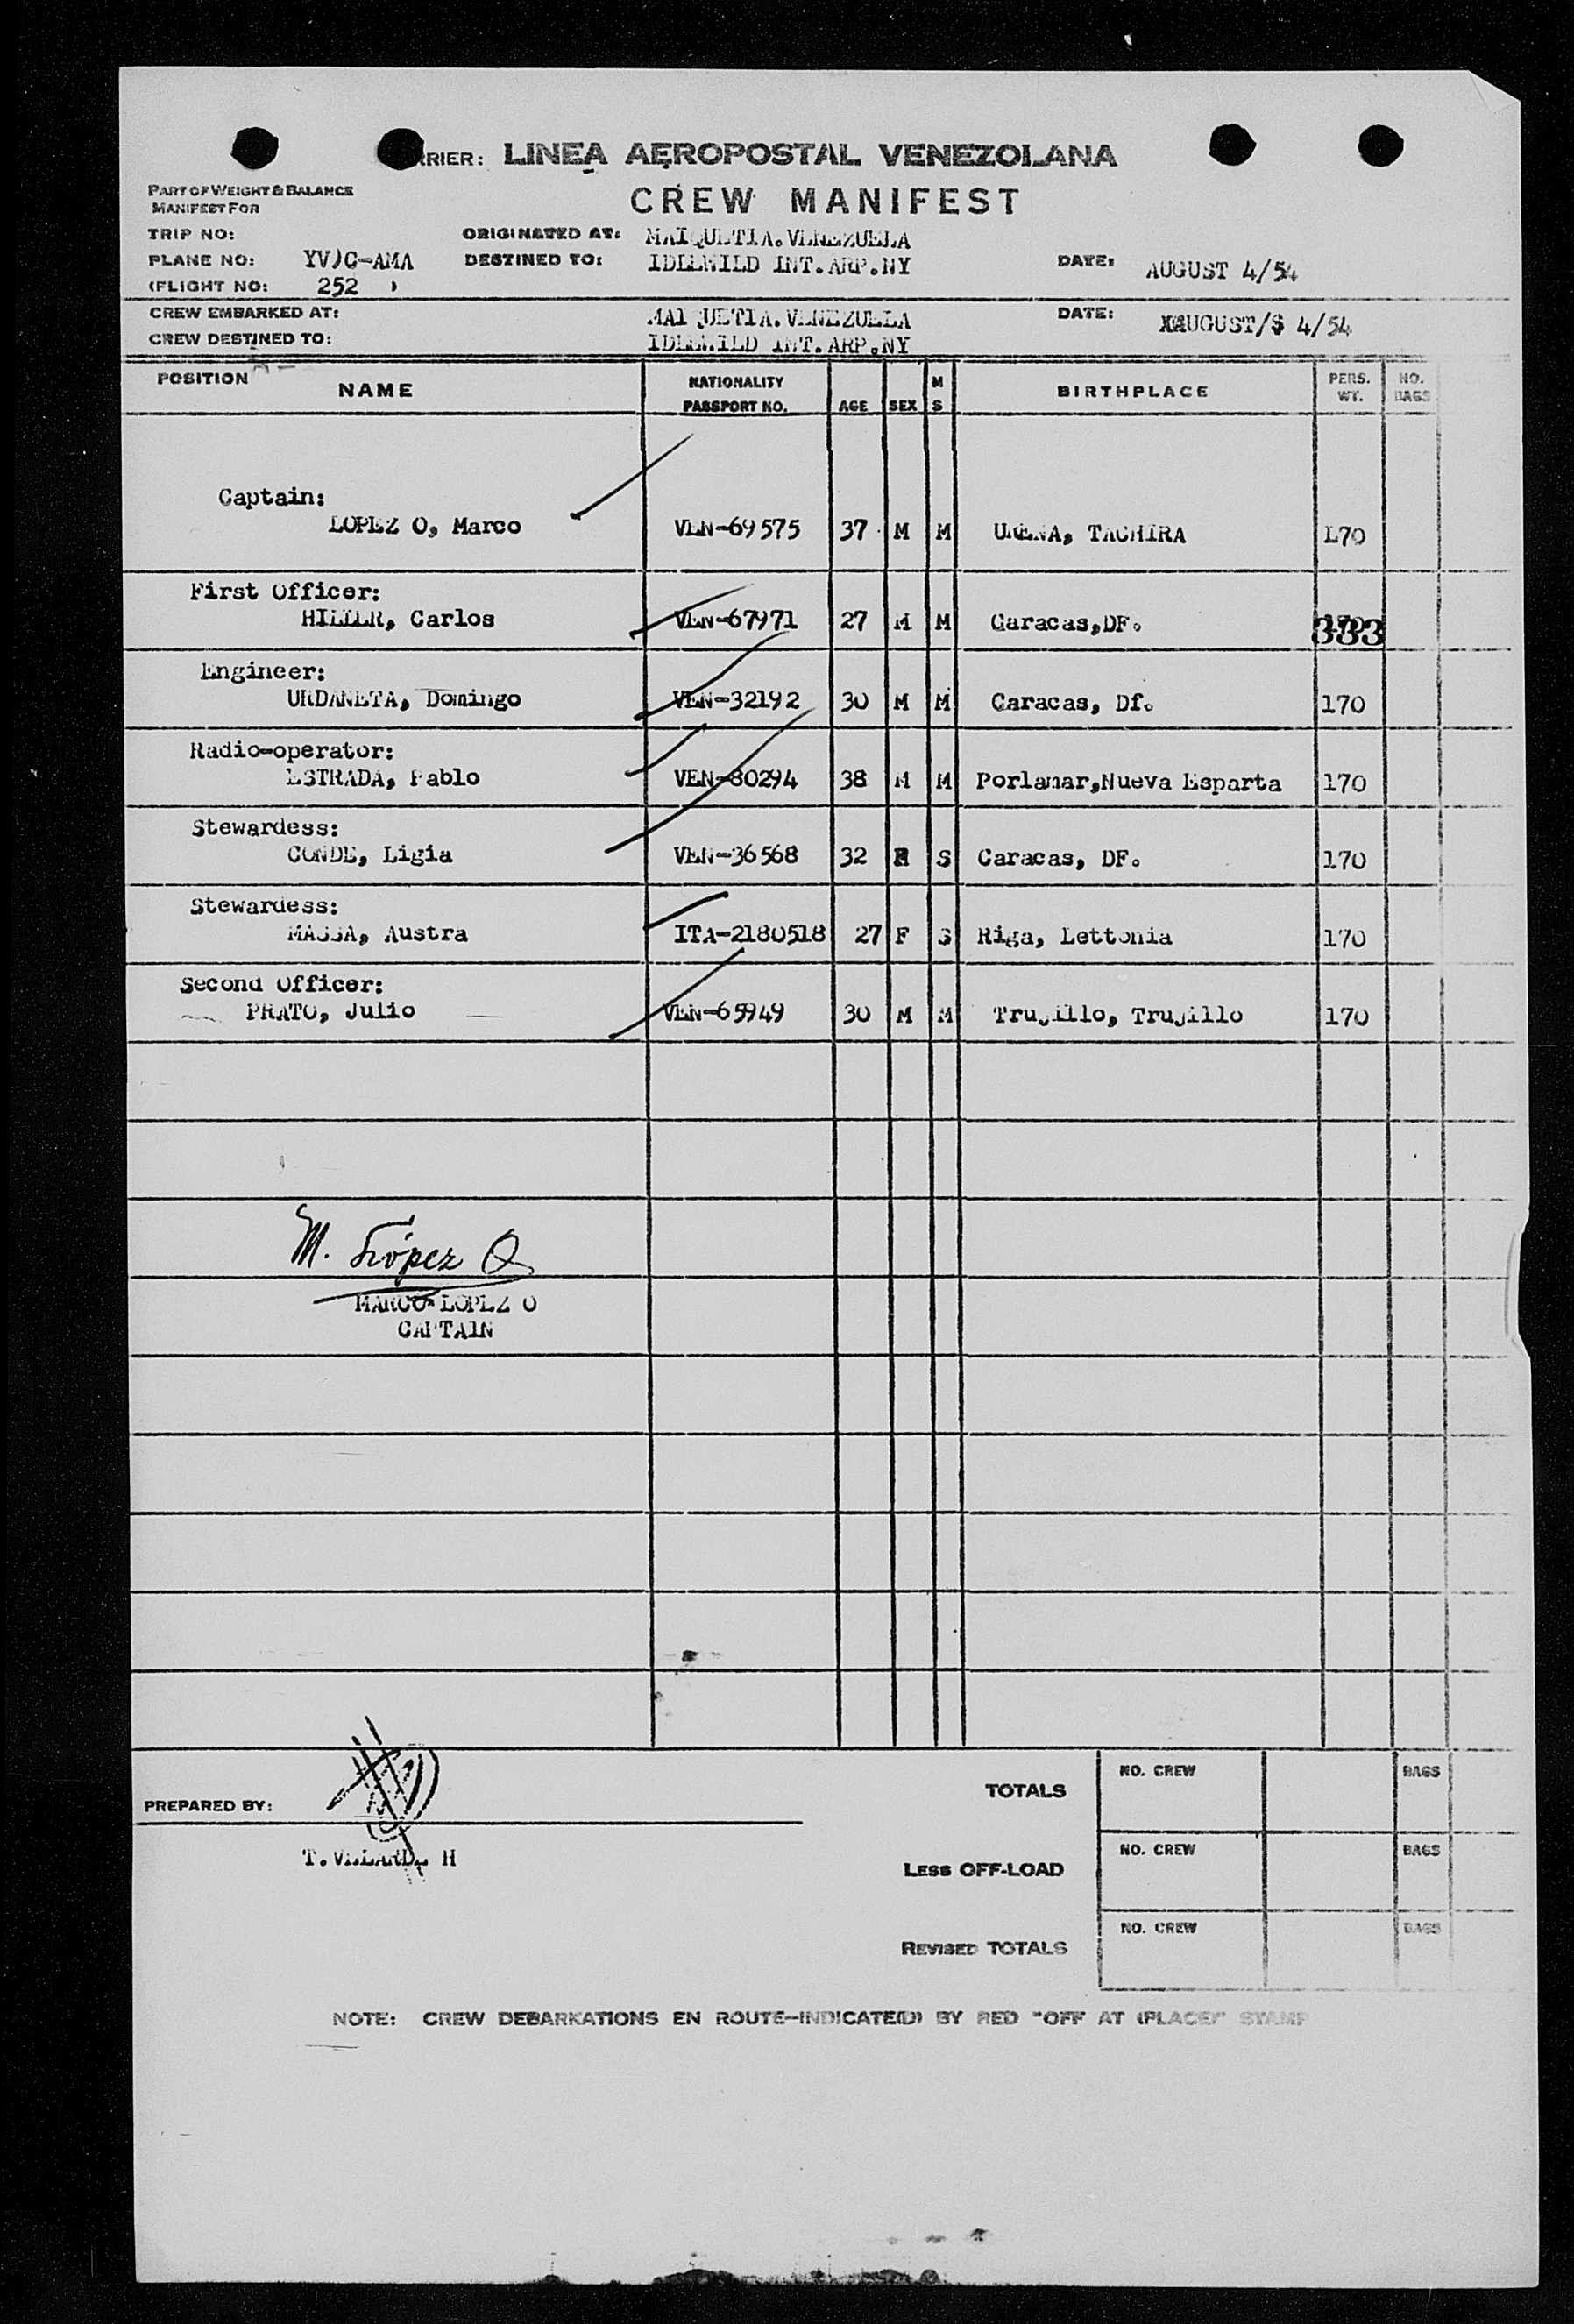 RRIER: LINEA AEROPOSTAL VENEZOLANA
PART OF WEIGHT & BALANCE
MANIFEST FOR
CREW MANIFEST
TRIP NO:
ORIGINATED AT: MAIQUETIA.VENEZUELA
PLANE NO: YV)C-AMA
DESTINED TO: IDLEWILD INT.ARP.NY
DATE: AUGUST 4/54
(FLIGHT NO: 252 )
CREW EMBARKED AT: MAIQUETIA.VENEZUELA
DATE: XAUGUST/$ 4/54
CREW DESTINED TO: IDLEWILD INT.ARP.NY
POSITION NAME NATIONALITY PASSPORT NO. AGE SEX M S BIRTHPLACE PERS. WT. NO. BAGS
Captain:
LOPEZ O, Marco VEN-69575 37 M M UREÑA, TACHIRA 170
First Officer:
HILLER, Carlos VEN-67971 27 M M Caracas,DF. 333
Engineer:
URDANETA, Domingo VEN-32192 30 M M Caracas, Df. 170
Radio-operator:
ESTRADA, Pablo VEN-80294 38 M M Porlamar,Nueva Esparta 170
Stewardess:
CONDE, Ligia VEN-36568 32 F S Caracas, DF. 170
Stewardess:
MASSA, Austra ITA-2180518 27 F S Riga, Lettonia 170
Second Officer:
PRATO, Julio VEN-65949 30 M M Trujillo, Trujillo 170
M. López O
MARCO LOPEZ O
CAPTAIN
PREPARED BY:
T.VELARDE H
TOTALS NO. CREW BAGS
LESS OFF-LOAD NO. CREW BAGS
REVISED TOTALS NO. CREW BAGS
NOTE: CREW DEBARKATIONS EN ROUTE-INDICATE(D) BY RED "OFF AT (PLACE)" STAMP